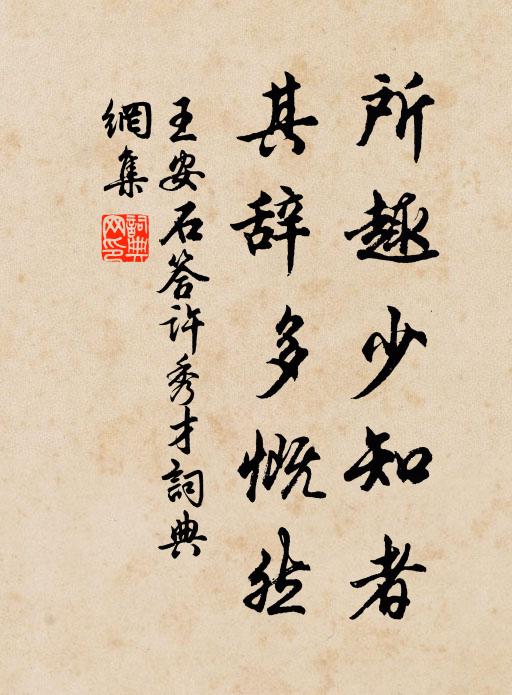 所趣少知者
其辞多慨然
王安石答许秀才詞典
網集
詞典
网印